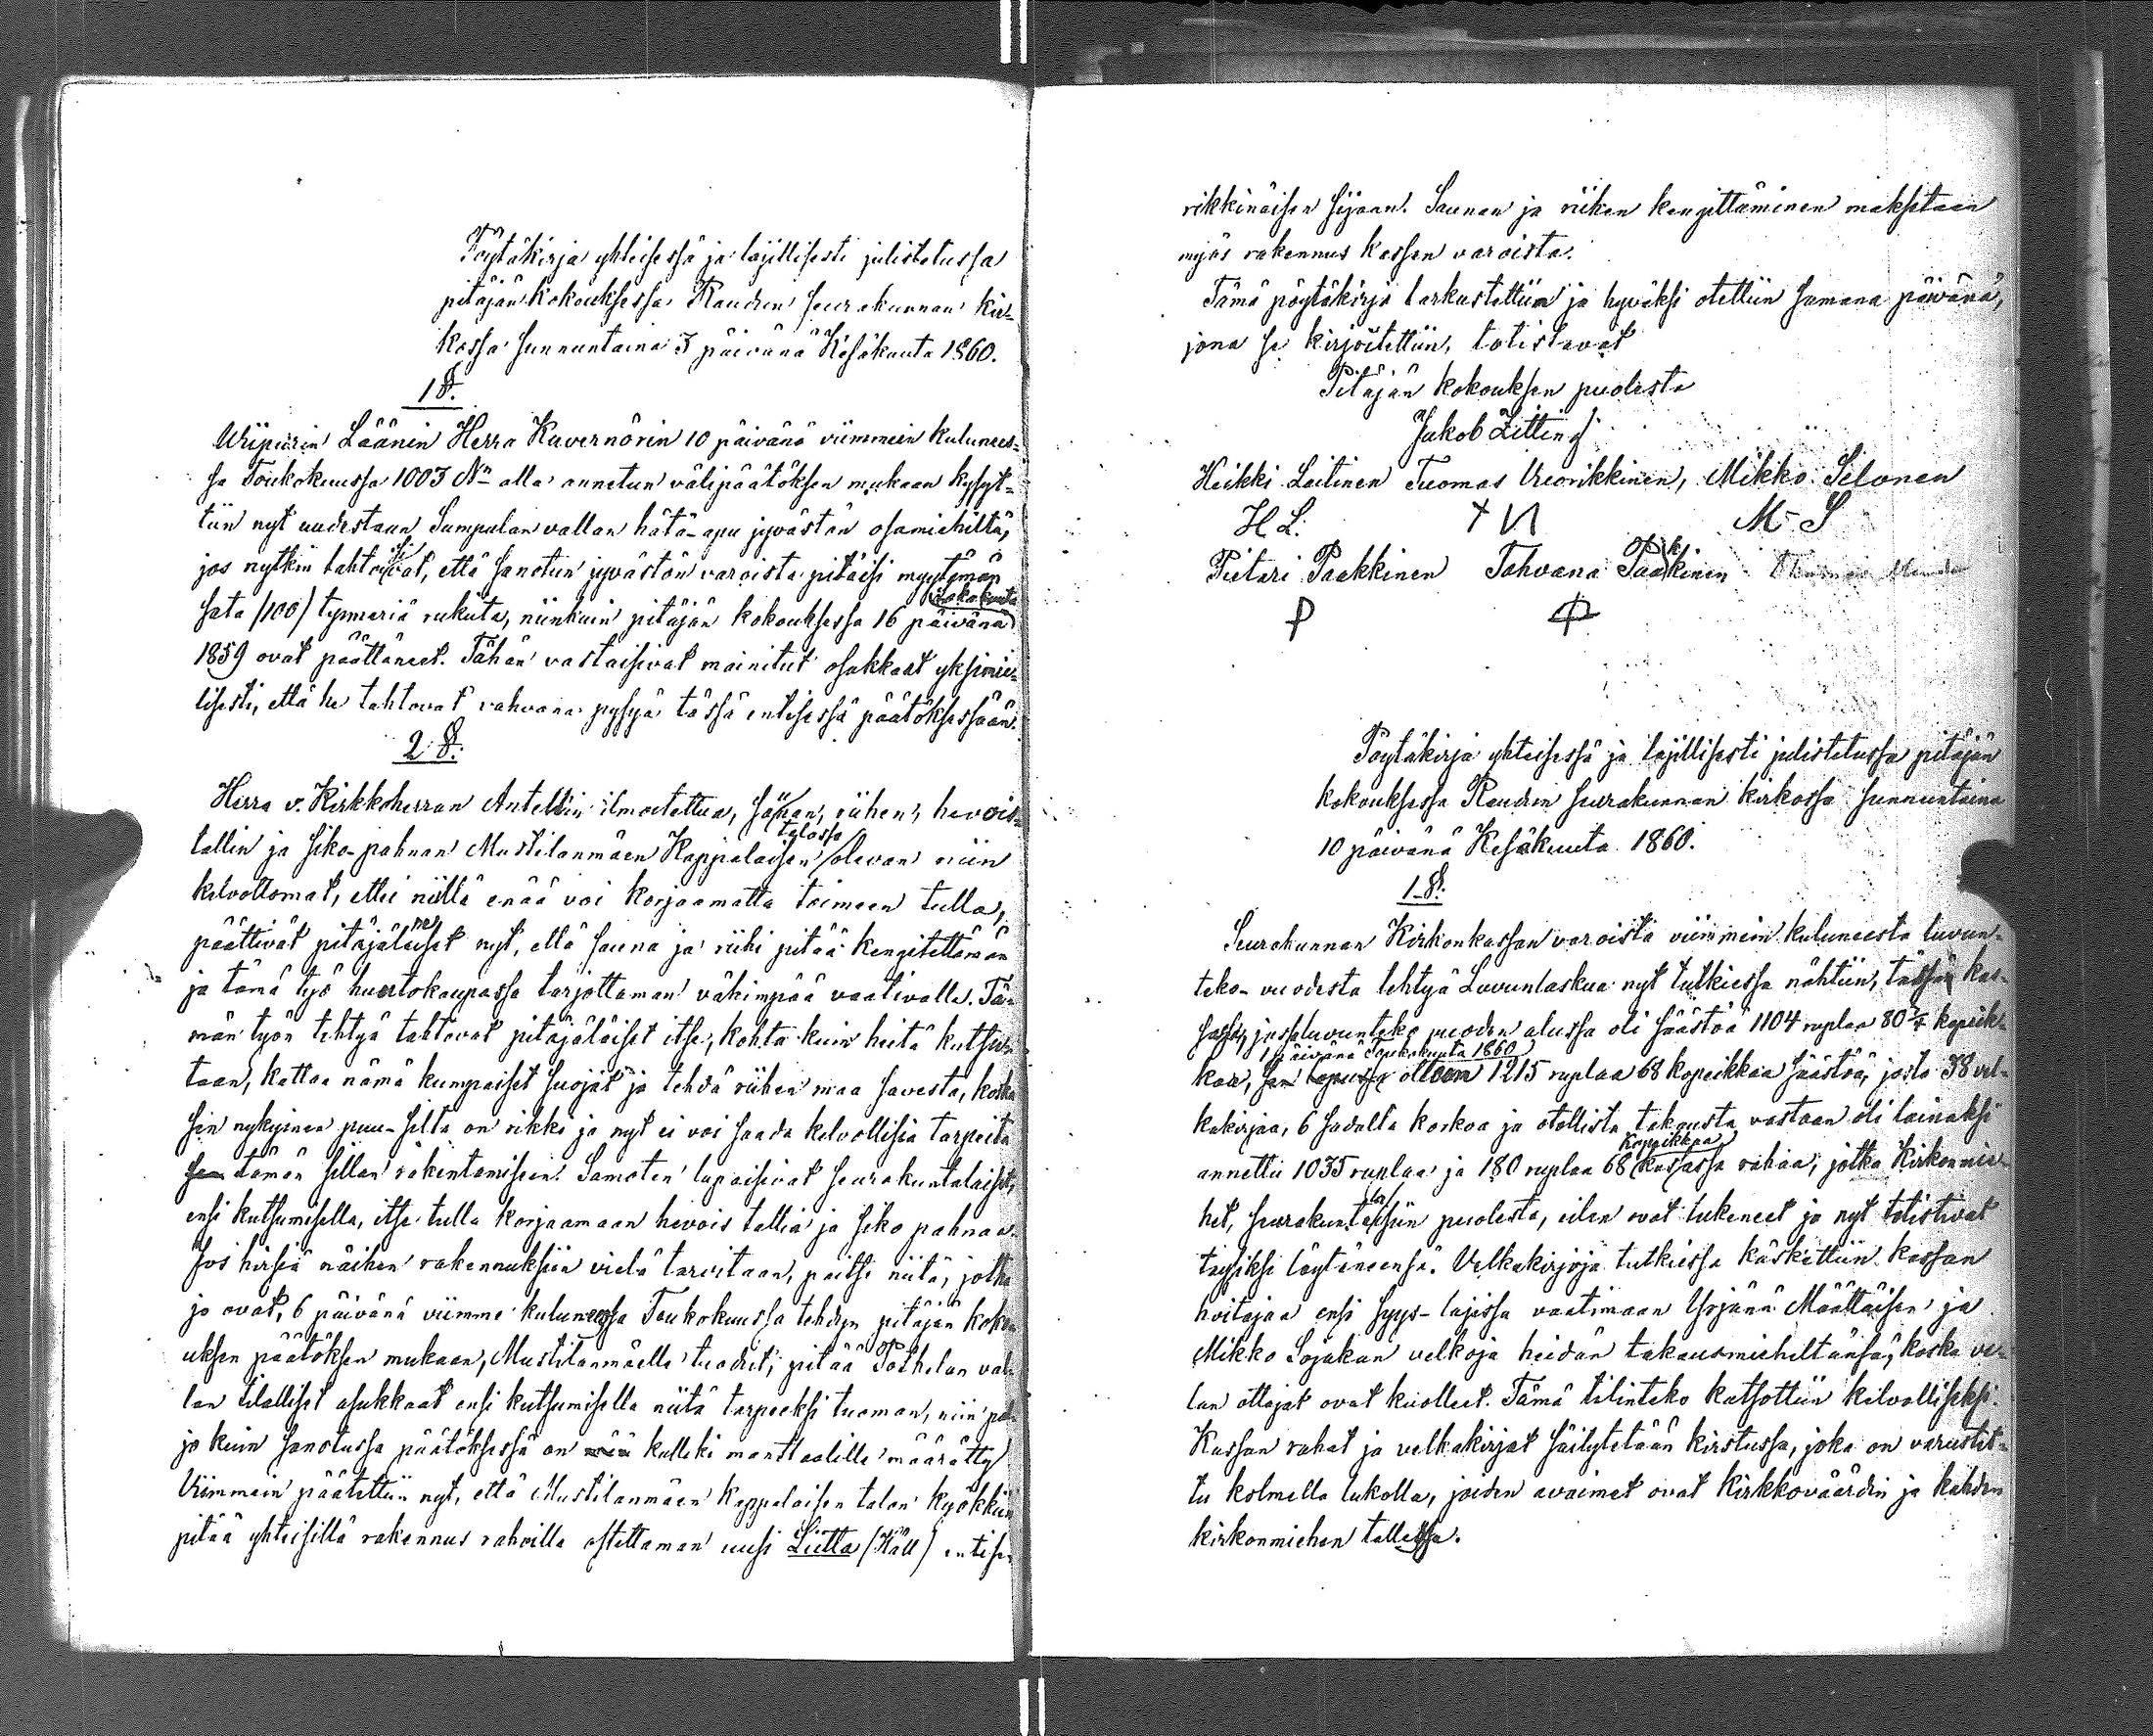 Pöytäkirja yhteisessä ja lajillisesti julistetussa
pitäjän kokouksessa Raudun seurakunnan kir-
kossa sunnuntaina 3 päivänä Kesäkuuta 1860.
1 §.
Wiipurin Läänin Herra Kuvernörin 10 päivänä viimmein kulunees-
sa Toukokuussa 1003 No alla annetun välipäätöksen mukaan kysyt-
tiin nyt uudestaan Sumpulan vallan hätä-apu jyvästön osamiehiltä,
jos nytkin tahtoisivat, että sanotun jyvästön varoista pitäisi myytämän
sata /100/ tynneriä rukiita, niinkuin pitäjän kokouksessa 16 päivänä lokakuuta
1859 ovat päättäneet. Tähän vastaisivat mainitut osakkaat yksimie-
lisesti, että he tahtovat vahvana pysyä tässä entisessä päätöksessään.
2 §.
Herra v. Kirkkoherran Antellin ilmoitettua, saunan, riihen, hevois-
tallin ja siko-pahnan Mustilanmäen Kappalaisen talossa olevan niin
kelvottomat, ettei niillä enää voi korjaamatta toimeen tulla,
päättivät pitäjäläiset nyt, että sauna ja riihi pitää kengitettämän
ja tämä työ huutokaupassa tarjottaman vähimpää vaativalle. Tä-
män työn tehtyä tahtovat pitäjäläiset itse, kohta kuin heitä kutsu-
taan, kattaa nämä kumpaiset huojat ja tehdä riihen maa savesta, koska
sen nykyinen puu-silta on rikki ja nyt ei voi saada kelvollisia tarpeita
sen tämän sillan rakentamiseen. Samaten lupaisivat seurakuntalaiset,
ensi kutsumisella, itse tulla korjaamaan hevois tallia ja siko pahnaa.
Jos hirsiä näihen rakennuksiin vielä tarvitaan, paitsi niitä, jotka
jo ovat, 6 päivänä viimme kuluneessa Toukokuussa tehdyn pitäjän koko-
uksen päätöksen mukaan, Mustilanmäelle tuodut, pitää Palkelan val-
lan tilalliset asukkaat ensi kutsumisella niitä tarpeeksi tuoman, niin pal-
jo kuin sanotussa päätöksessä on kulleki manttaalille määrätty
Viimmein päätettiin nyt, että Mustilanmäen Kappalaisen talon kyökkiin
pitää yhteisillä rakennus rahoilla ostettaman uusi Liitta /Häll/ entisen
rikkinäisen sijaan. Saunan ja riihen kengittäminen maksetaan
myös rakennus kassan varoista.
Tämä pöytäkirja tarkustettiin ja hyväksi otettiin samana päivänä,
jona se kirjoitettiin, totistavat
Pitäjän kokouksen puolesta
Jakob Zitting
Heikki Laitinen Tuomas Vuorikkinen, Mikko Silonen
H L. M-S
Pietari Paakkinen Tahvana Paakkinen
P
Pöytäkirja yhteisessä ja lajillisesti julistetussa pitäjän
kokouksessa Raudun seurakunnan kirkossa sunnuntaina
10 päivänä Kesäkuuta 1860.
1 §.
Seurakunnan Kirkonkassan varoista viimmein kuluneesta luvun-
teko-vuodesta tehtyä Luvunlaskua nyt tutkiessa nähtiin, tässä kas-
sassa, jossa luvunteko vuoden alussa oli säästöä 1104 ruplaa 80 3/4 kopeik-
kaa, 1 päivänä Toukokuuta 1860 olleen 1215 ruplaa 68 kopeikkaa säästöä, josta 38 vel-
kakirjaa, 6 sadalta korkoa ja otollista takausta vastaan oli lainaksi
annettu 1035 ruplaa ja 180 ruplaa 68 Kopeikkaa kassassa rahaa, jotka Kirkonmie-
het, seurakuntalaisiin puolesta, eilen ovat lukeneet ja nyt totistivat
täysiksi löytäneensä. Velkakirjoja tutkiessa käskettiin kassan
hoitajaa ensi syys-lajissa vaatimaan Yrjänä Määttäisen ja
Mikko Sojakan velkoja heidän takausmieheltänsä, koska ve-
lan ottajat ovat kuolleet. Tämä tilinteko katsottiin kelvolliseksi.
Kassan rahat ja velkakirjat säilytetään kirstussa, joka on varustet-
tu kolmella lukolla, joiden avaimet ovat Kirkkoväärdin ja kahden
kirkonmiehen tallessa.